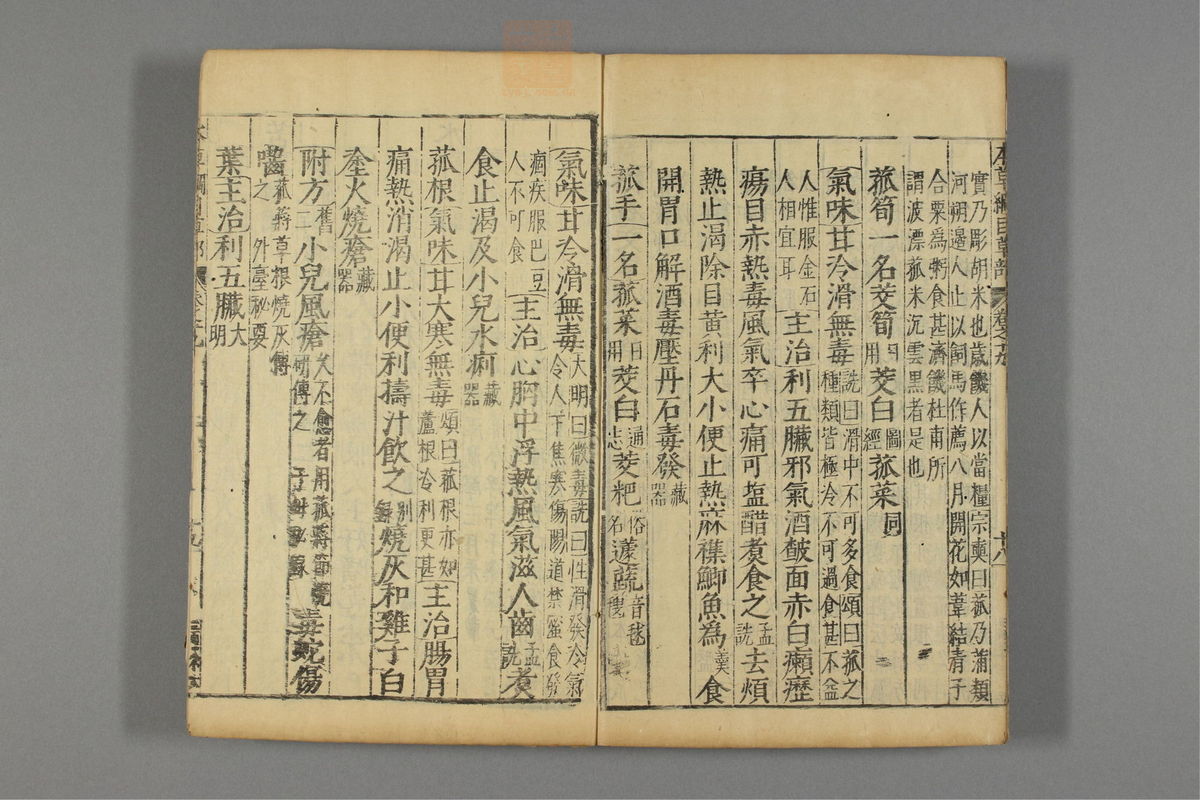 實乃彫胡米也歲饑人以當糧宗奭曰菰乃蒲類
河朔邊人止以飼馬作薦八月開花如葦結青子
合粟為粥食甚濟饑杜甫所
謂波漂菰米沉雲黑者是也
菰筍一名茭筍日用茭白圖經菰菜同
氣味甘冷滑無毒詵曰滑中不可多食頌曰菰之種類皆極冷不可過食甚不益
人惟服金石人相宜耳主治利五臟邪氣酒皶面赤白癩瀝
瘍目赤熱毒風氣卒心痛可塩醋煮食之孟詵去煩
熱止渴除目黃利大小便止熱痢雜鯽魚為羹食
開胃口解酒毒壓丹石毒發藏器
菰手一名菰菜日用茭白通志茭粑俗名蘧蔬音毬
氣味甘冷滑無毒大明曰微毒詵曰性滑發冷氣令人下焦寒傷陽道禁蜜食發
痼疾服巴豆人不可食主治心胸中浮熱風氣滋人齒孟詵煮
食止渴及小兒水痢藏器
菰根氣味甘大寒無毒頌曰菰根亦如蘆根冷利更甚主治腸胃
痛熱消渴止小便利擣汁飲之別錄燒灰和雞子白
塗火燒瘡藏器
附方舊二小兒風瘡久不愈者用菰蔣節燒研傅之子母秘錄毒蛇傷
嚙菰蔣草根燒灰傅之外臺秘要
葉主治利五臟大明